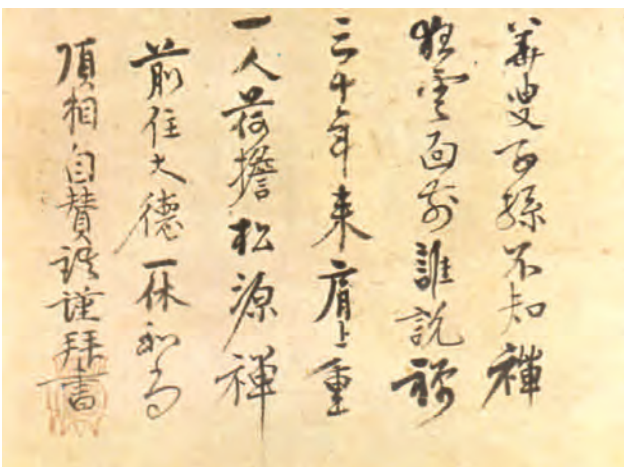 華叟子孫不知禅
狂雲面前誰説禅
三十年来肩上重
一人荷擔松源禅
前住大德一休和尚
頂相自賛謹拝書